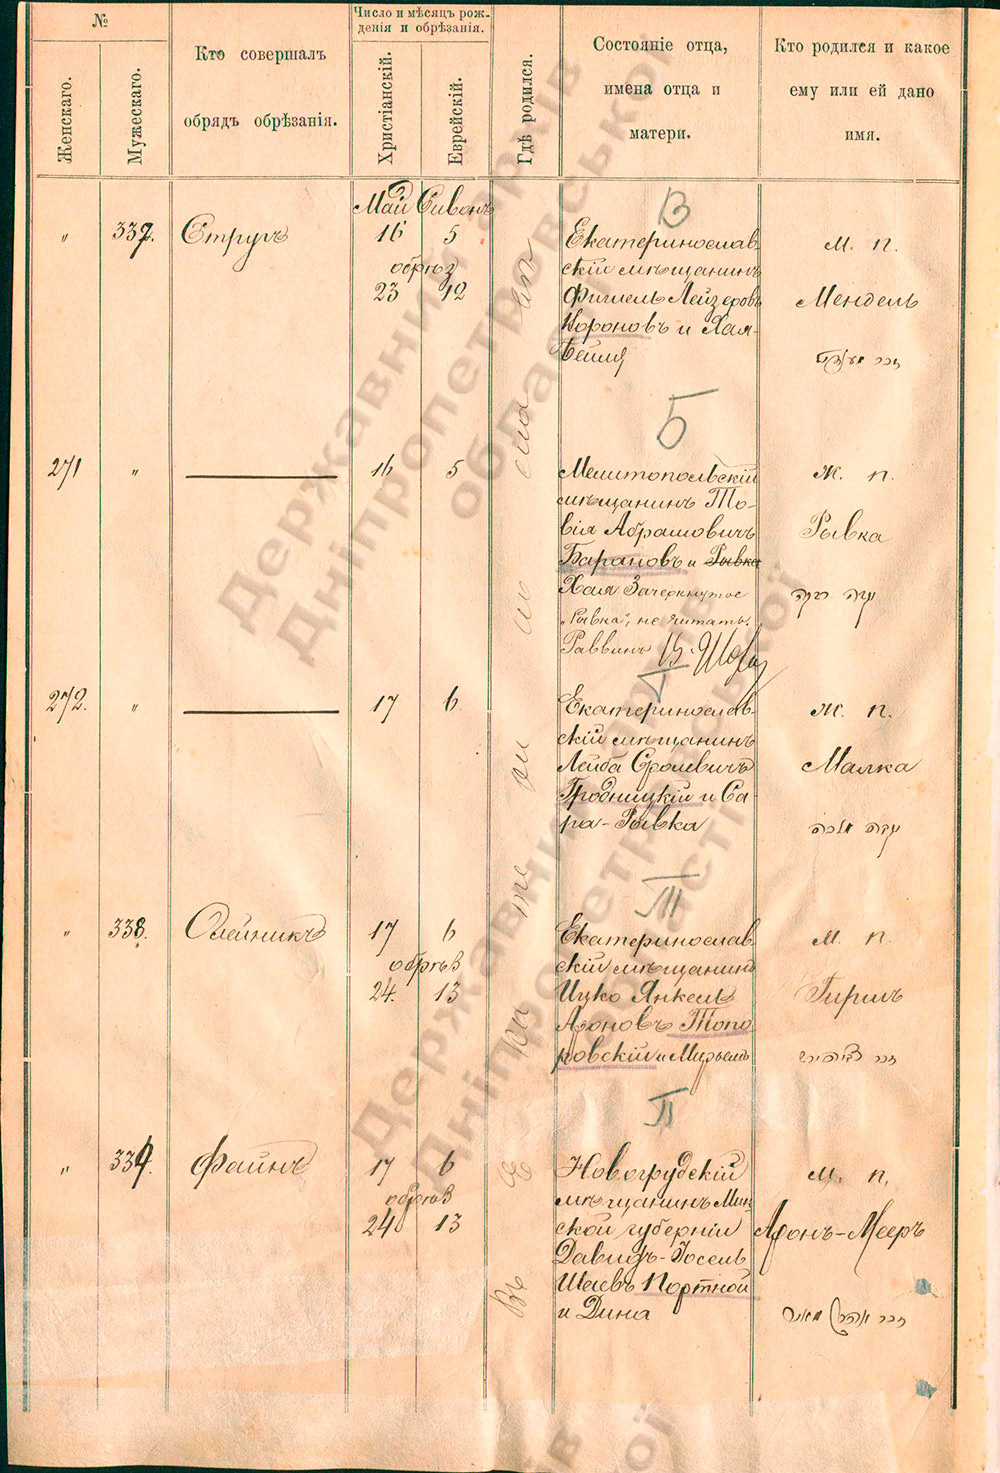 №
Женскаго.
Мужескаго.
Кто совершалъ
обрядъ обрѣзанія.
Число и мѣсяцъ рож-
денія и обрѣзанія.
Христіанскій.
Еврейскій.
Гдѣ родился.
Состояніе отца,
имена отца и
матери.
Кто родился и какое
ему или ей дано
имя.
Май Сивонъ
В
" 337. Стругъ 16 5
обрѣз
23 12
Екатеринослав-
скій мѣщанинъ
Фишель Лейзеровъ
Короновъ и Хая-
Бейля
М. п.
Мендель
זכר מענדיל
Б
271 " 16 5
Мелитопольскій
мѣщанинъ То-
вія Абрамовичъ
Барановъ и Рывка
Хая Зачеркнутое
„Рывка", не читать.
Раввинъ
Ж. п.
Рывка
נקבה רבקה
Г
272. " 17 6
Екатеринослав-
скій мѣщанинъ
Лейба Сролевичъ
Гродницкій и Са-
ра-Рывка
Ж. п.
Малка
נקבה מלכה
Т
" 338. Олейникъ 17 6
обрѣз
24. 13
Екатеринослав
скій мѣщанинъ
Ицко Янкель
Ароновъ Топо
ровскій и Мирьемъ
М. п.
Гиршъ
זכר
П
" 339. Файнъ 17 6
обрѣз
24 13
Новогрудскій
мѣщанинъ Мин-
ской губерніи
Давидъ-Іосель
Шаевъ Портной
и Дина
М. п.
Аронъ-Мееръ
זכר אהרן מאיר
Въ Екатеринославѣ
Державний архів
Дніпропетровської
області
Державний архів
Дніпропетровської
області